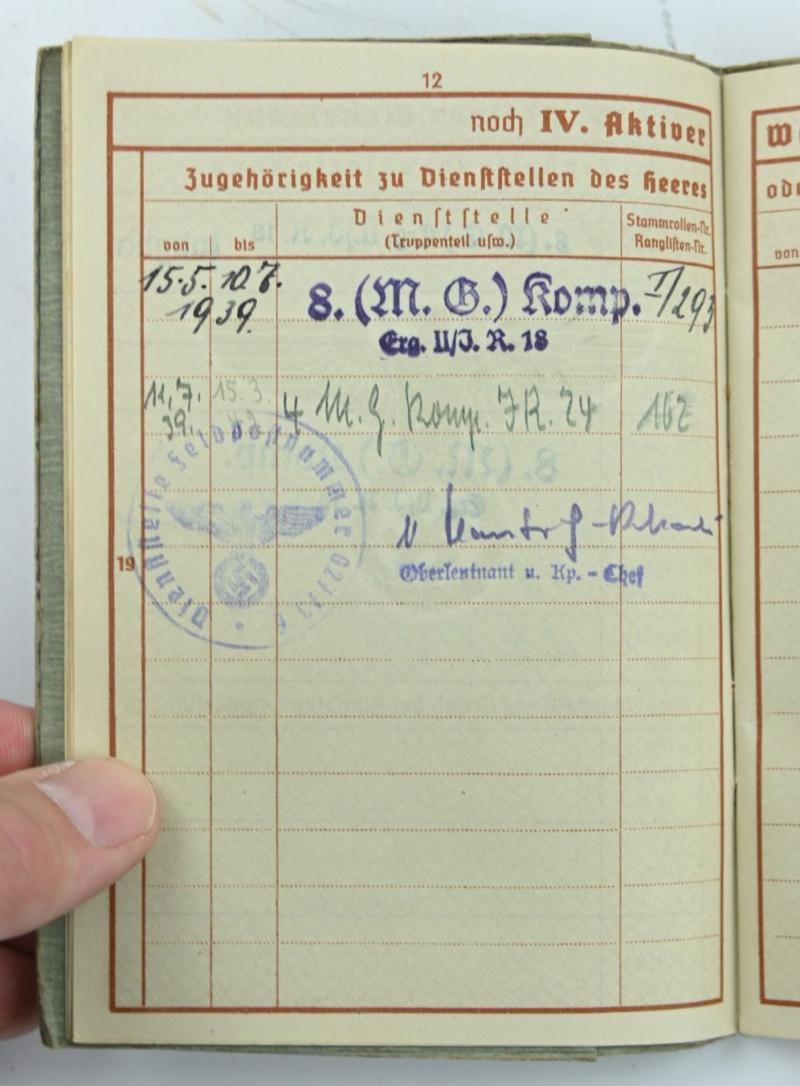 12
noch IV. Aktiver
Zugehörigkeit zu Dienststellen des Heeres
von
bis
Dienststelle
(Truppenteil usw.)
Stammrollen-Nr.
Ranglisten-Nr.
15.5. 10.7.
1939.
8. (M. G.) Komp.
Erg. II/J. R. 18
II/293
11.7.
39.
15.3.
4 M. G. Komp. JR. 24
162
Dienststelle Feldpostnummer
19
Oberleutnant u. Kp. - Chef
W
ode
von